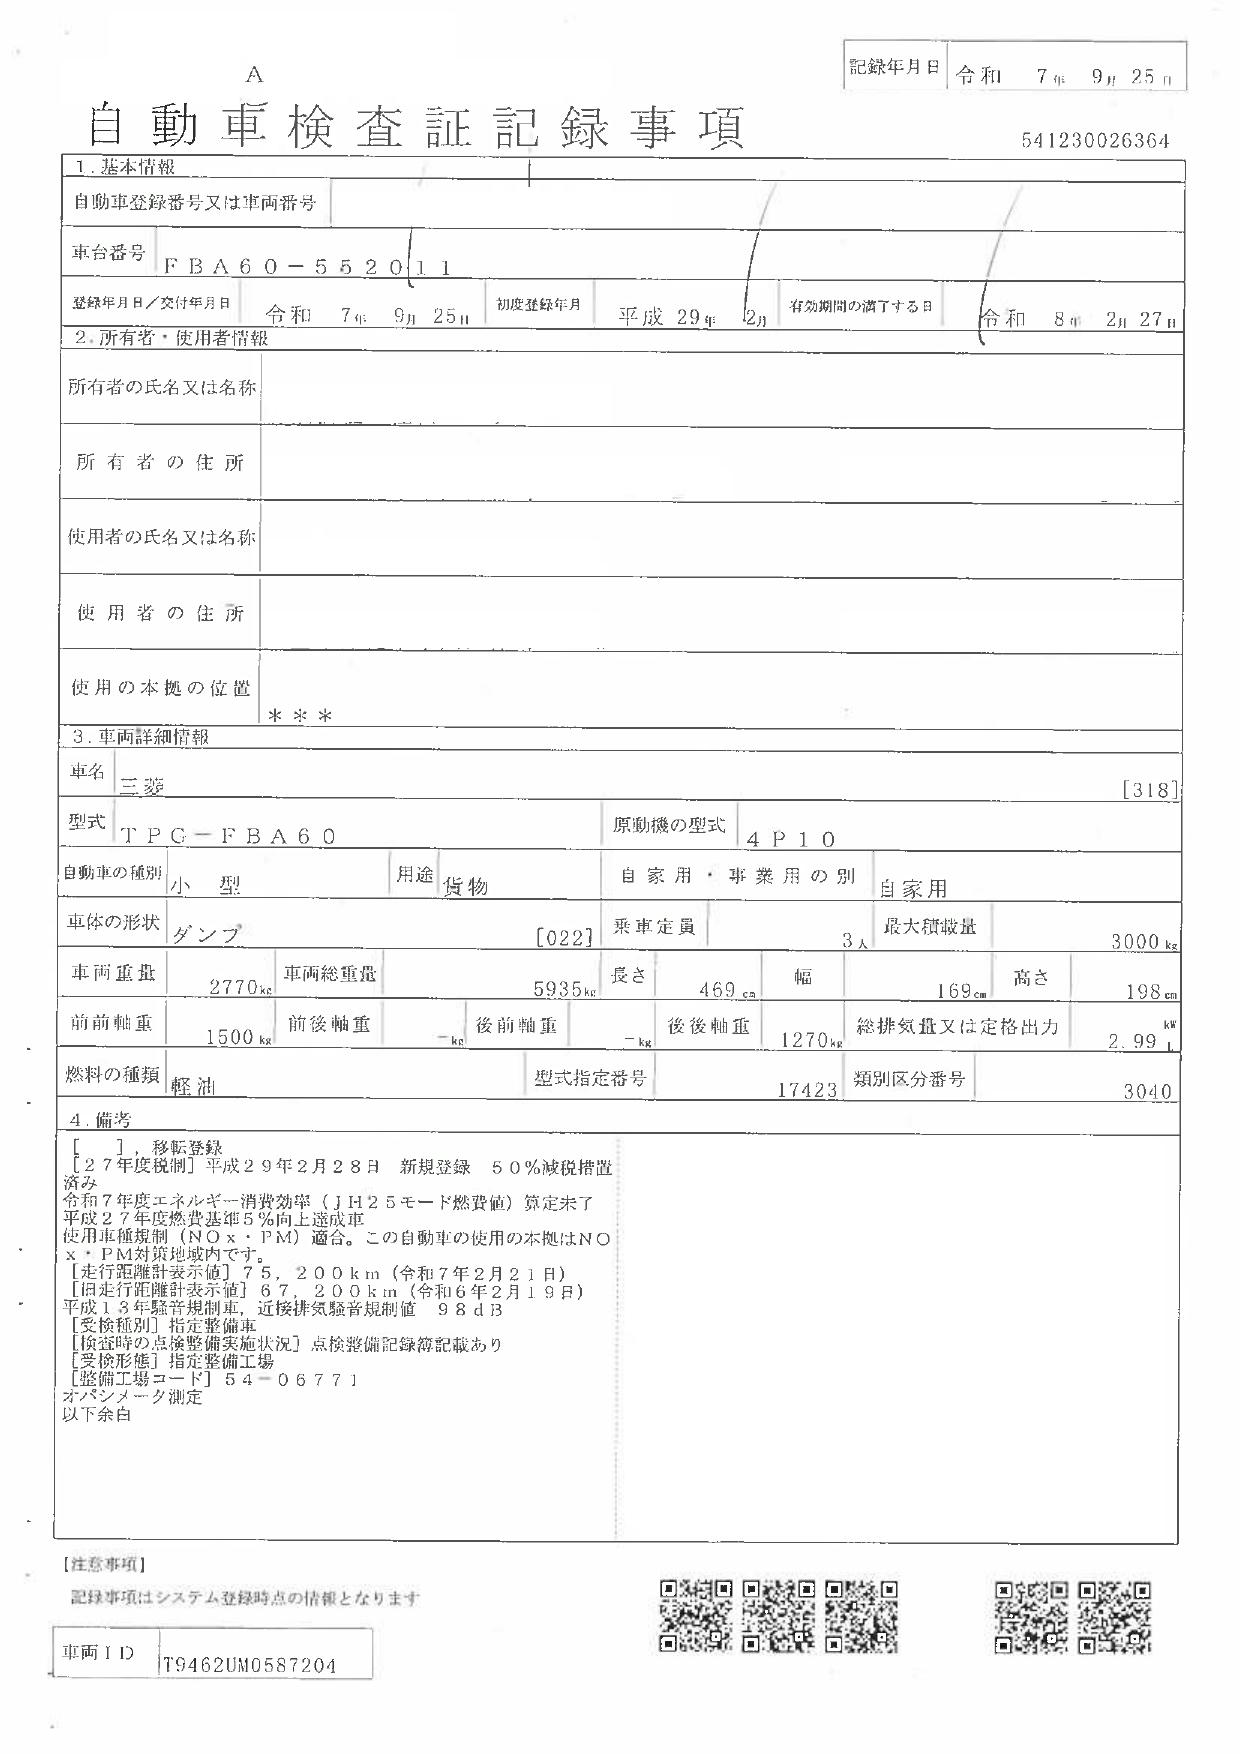 記録年月日 令和 7年 9月 25日
A
自動車検査証記録事項
541230026364
1.基本情報
自動車登録番号又は車両番号
車台番号 FBA60-552011
登録年月日/交付年月日 令和 7年 9月 25日 初度登録年月 平成 29年 2月 有効期間の満了する日 令和 8年 2月 27日
2.所有者・使用者情報
所有者の氏名又は名称
所有者の住所
使用者の氏名又は名称
使用者の住所
使用の本拠の位置 ***
3.車両詳細情報
車名 三菱 [318]
型式 TPG-FBA60 原動機の型式 4P10
自動車の種別 小型 用途 貨物 自家用・事業用の別 自家用
車体の形状 ダンプ [022] 乗車定員 3人 最大積載量 3000kg
車両重量 2770kg 車両総重量 5935kg 長さ 469cm 幅 169cm 高さ 198cm
前前軸重 1500kg 前後軸重 -kg 後前軸重 -kg 後後軸重 1270kg 総排気量又は定格出力 2.99 kW L
燃料の種類 軽油 型式指定番号 17423 類別区分番号 3040
4.備考
[ ],移転登録
[27年度税制]平成29年2月28日 新規登録 50%減税措置
済み
令和7年度エネルギー消費効率(JH25モード燃費値)算定未了
平成27年度燃費基準5%向上達成車
使用車種規制(NOx・PM)適合。この自動車の使用の本拠はNO
x・PM対策地域内です。
[走行距離計表示値]75,200km(令和7年2月21日)
[旧走行距離計表示値]67,200km(令和6年2月19日)
平成13年騒音規制車,近接排気騒音規制値 98dB
[受検種別]指定整備車
[検査時の点検整備実施状況]点検整備記録簿記載あり
[受検形態]指定整備工場
[整備工場コード]54-06771
オパシメータ測定
以下余白
【注意事項】
記録事項はシステム登録時点の情報となります
車両ID T9462UM0587204